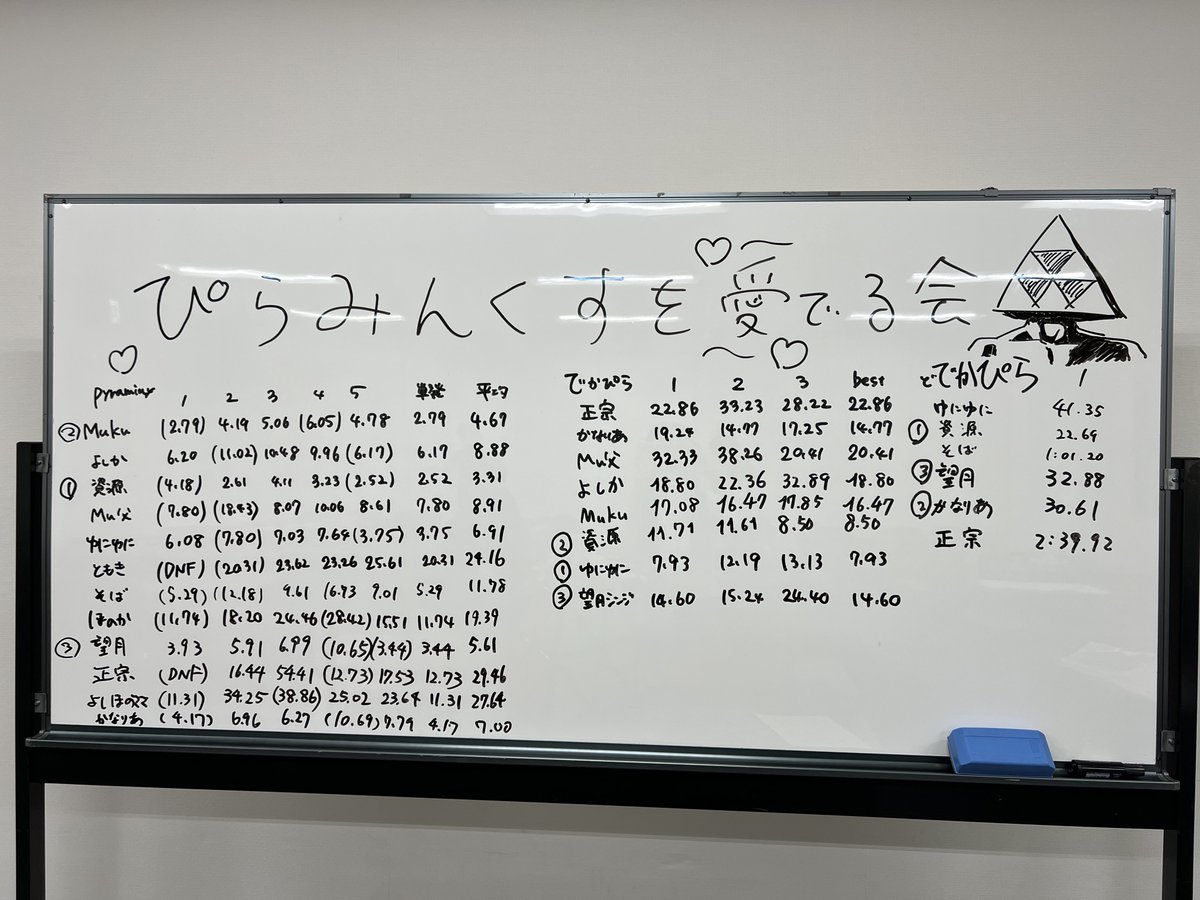 ぴらみんくすを愛でる会
pyraminx 1 2 3 4 5 単発 平均
② Muku (2.79) 4.19 5.06 (6.05) 4.78 2.79 4.67
よしか 6.20 (11.02) 10.48 9.96 (6.17) 6.17 8.88
① 資源 (4.18) 2.61 4.11 3.23 (2.52) 2.52 3.31
Mu父 (7.80) (18.43) 8.07 10.06 8.61 7.80 8.91
ゆにゆに 6.08 (7.80) 7.03 7.64 (3.75) 3.75 6.91
ともき (DNF) (20.31) 23.62 23.26 25.61 20.31 24.16
そば (5.29) (12.18) 9.61 16.73 9.01 5.29 11.78
ほのか (11.74) 18.20 24.46 (28.42) 15.51 11.74 19.39
③ 望月 3.93 5.91 6.99 (10.65) (3.44) 3.44 5.61
正宗 (DNF) 16.44 54.41 (12.73) 17.53 12.73 29.46
よしほのママ (11.31) 34.25 (38.86) 25.02 23.64 11.31 27.64
かなりあ (4.17) 6.96 6.27 (10.69) 7.79 4.17 7.00
でかぴら 1 2 3 best
正宗 22.86 33.23 28.22 22.86
かなりあ 19.24 14.77 17.25 14.77
Mu父 32.33 38.26 20.41 20.41
よしか 18.80 22.36 32.89 18.80
Muku 17.08 16.47 17.85 16.47
② 資源 11.71 11.61 8.50 8.50
① ゆにゆに 7.93 12.19 13.13 7.93
③ 望月シンジ 14.60 15.24 24.40 14.60
どでかぴら 1
ゆにゆに 41.35
① 資源 22.69
そば 1:01.20
③ 望月 32.88
② かなりあ 30.61
正宗 2:39.92